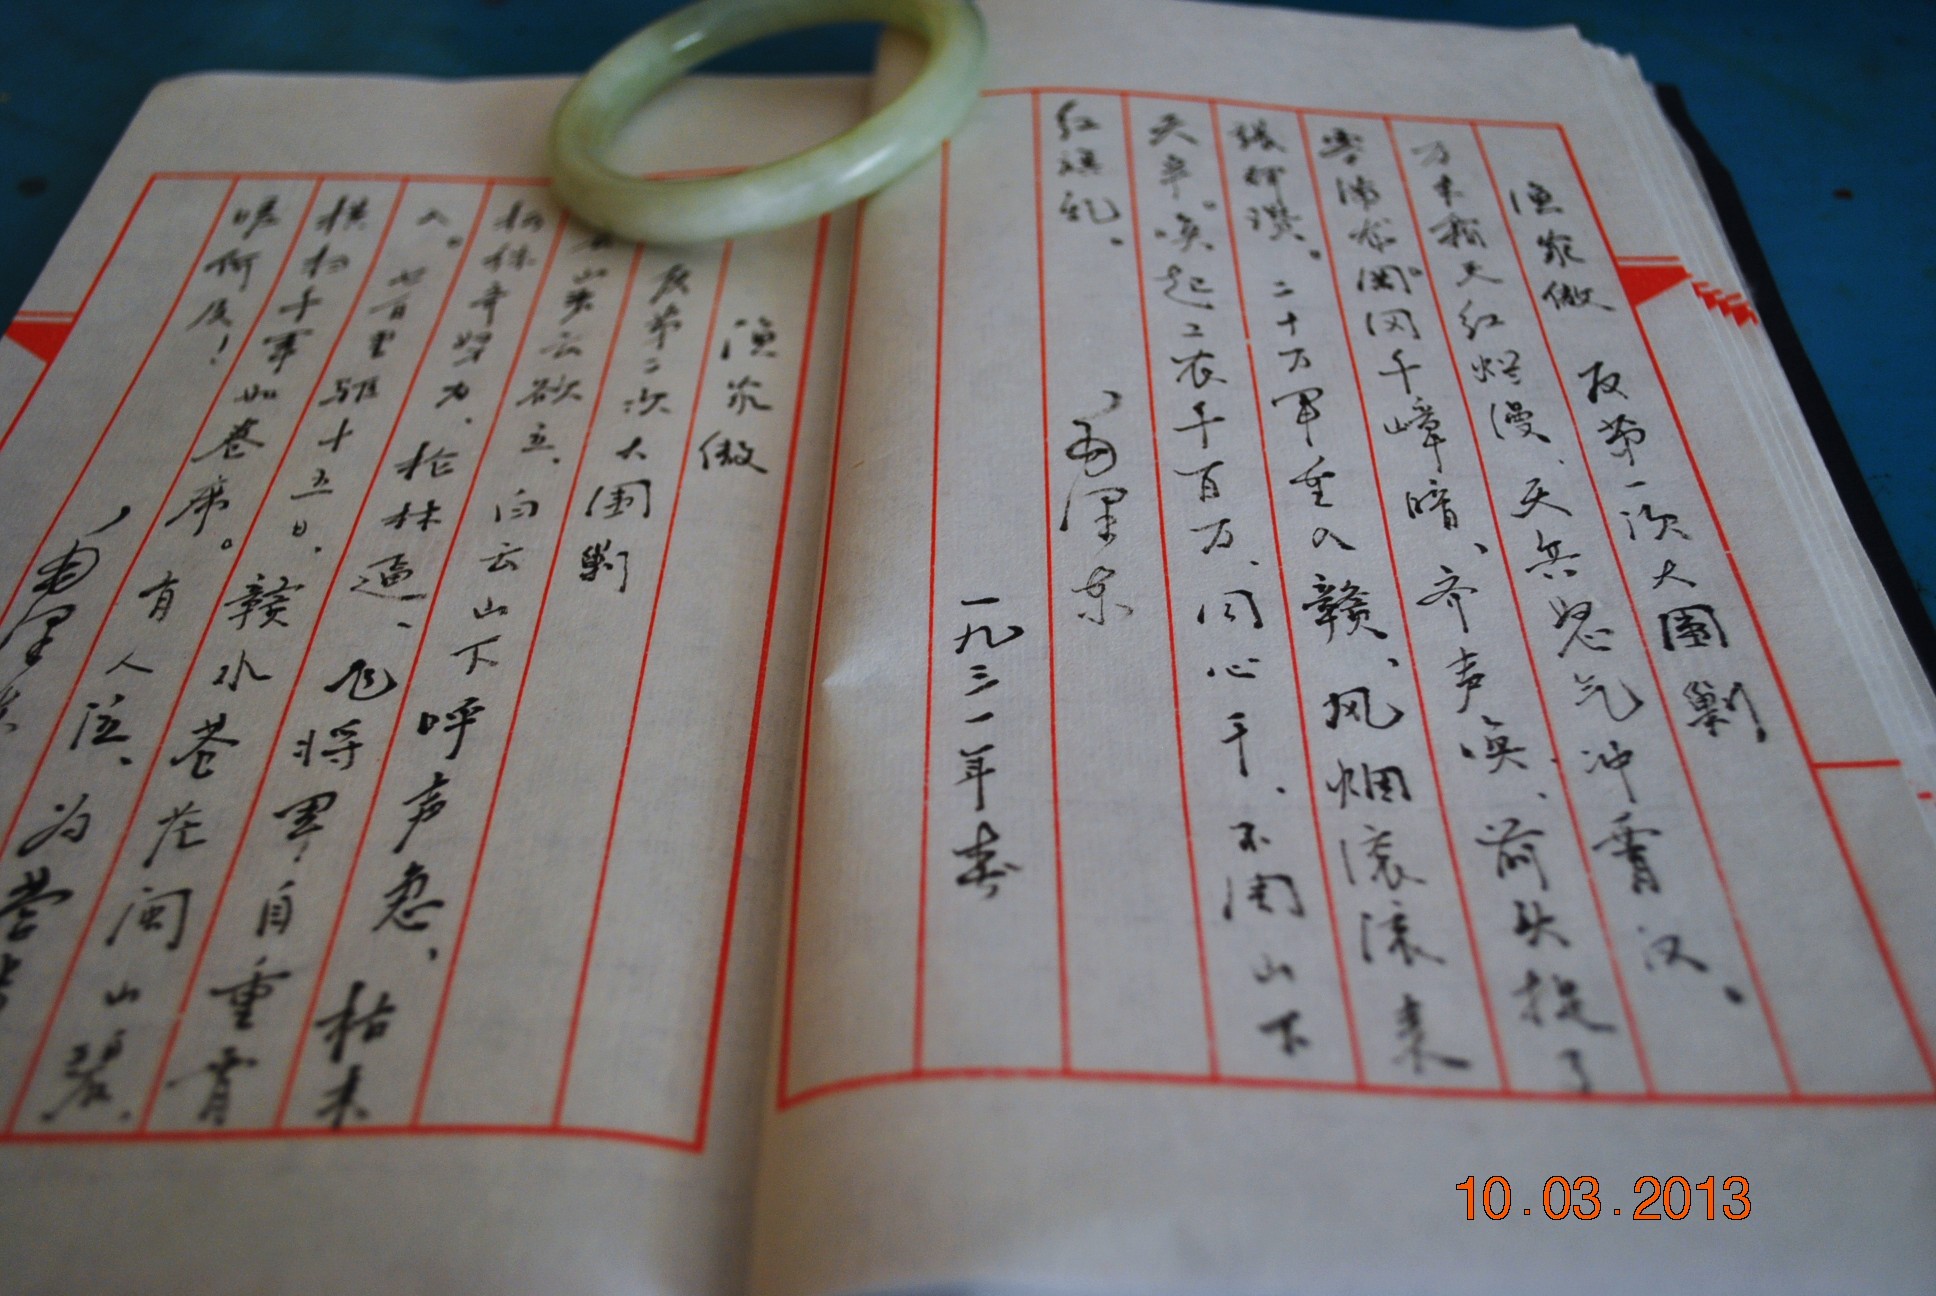 渔家傲 反第一次大圍剿
万木霜天红烂漫、天兵怒气冲霄汉。
雾满龙岡冈千嶂暗、齐声唤、前头捉了
张辉瓒。二十万军重入赣、风烟滚滚来
天半。唤起工农千百万、同心干、不周山下
红旗乱。 毛泽东
一九三一年春
渔家傲
反第二次大围剿
云山头云欲立、白云山下呼声急、枯木
朽株齐努力、枪林逼、飞将军自重霄
入。七百里驱十五日、赣水苍茫闽山碧、
横扫千军如卷席。有人泣、为营步
嗟何及! 毛泽东
10.03.2013